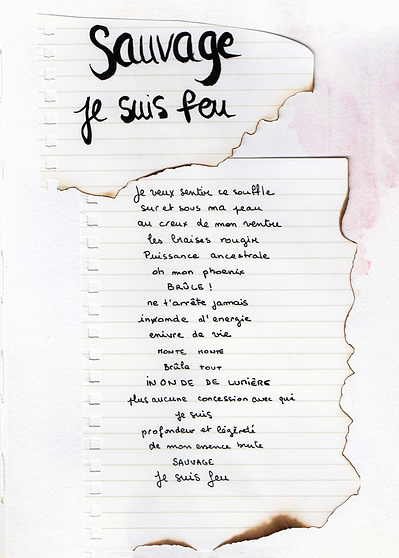 Sauvage
je suis feu
je veux sentir ce souffle
sur et sous ma peau
au creux de mon ventre
les braises rougir
Puissance ancestrale
oh mon phoenix
BRÛLE !
ne t'arrête jamais
inonde d'energie
enivre de vie
MONTE MONTE
Brûle TOUT
INONDE DE LUMIÈRE
plus aucune concession avec qui
je suis
profondeur et légèreté
de mon essence brute
SAUVAGE
je suis feu